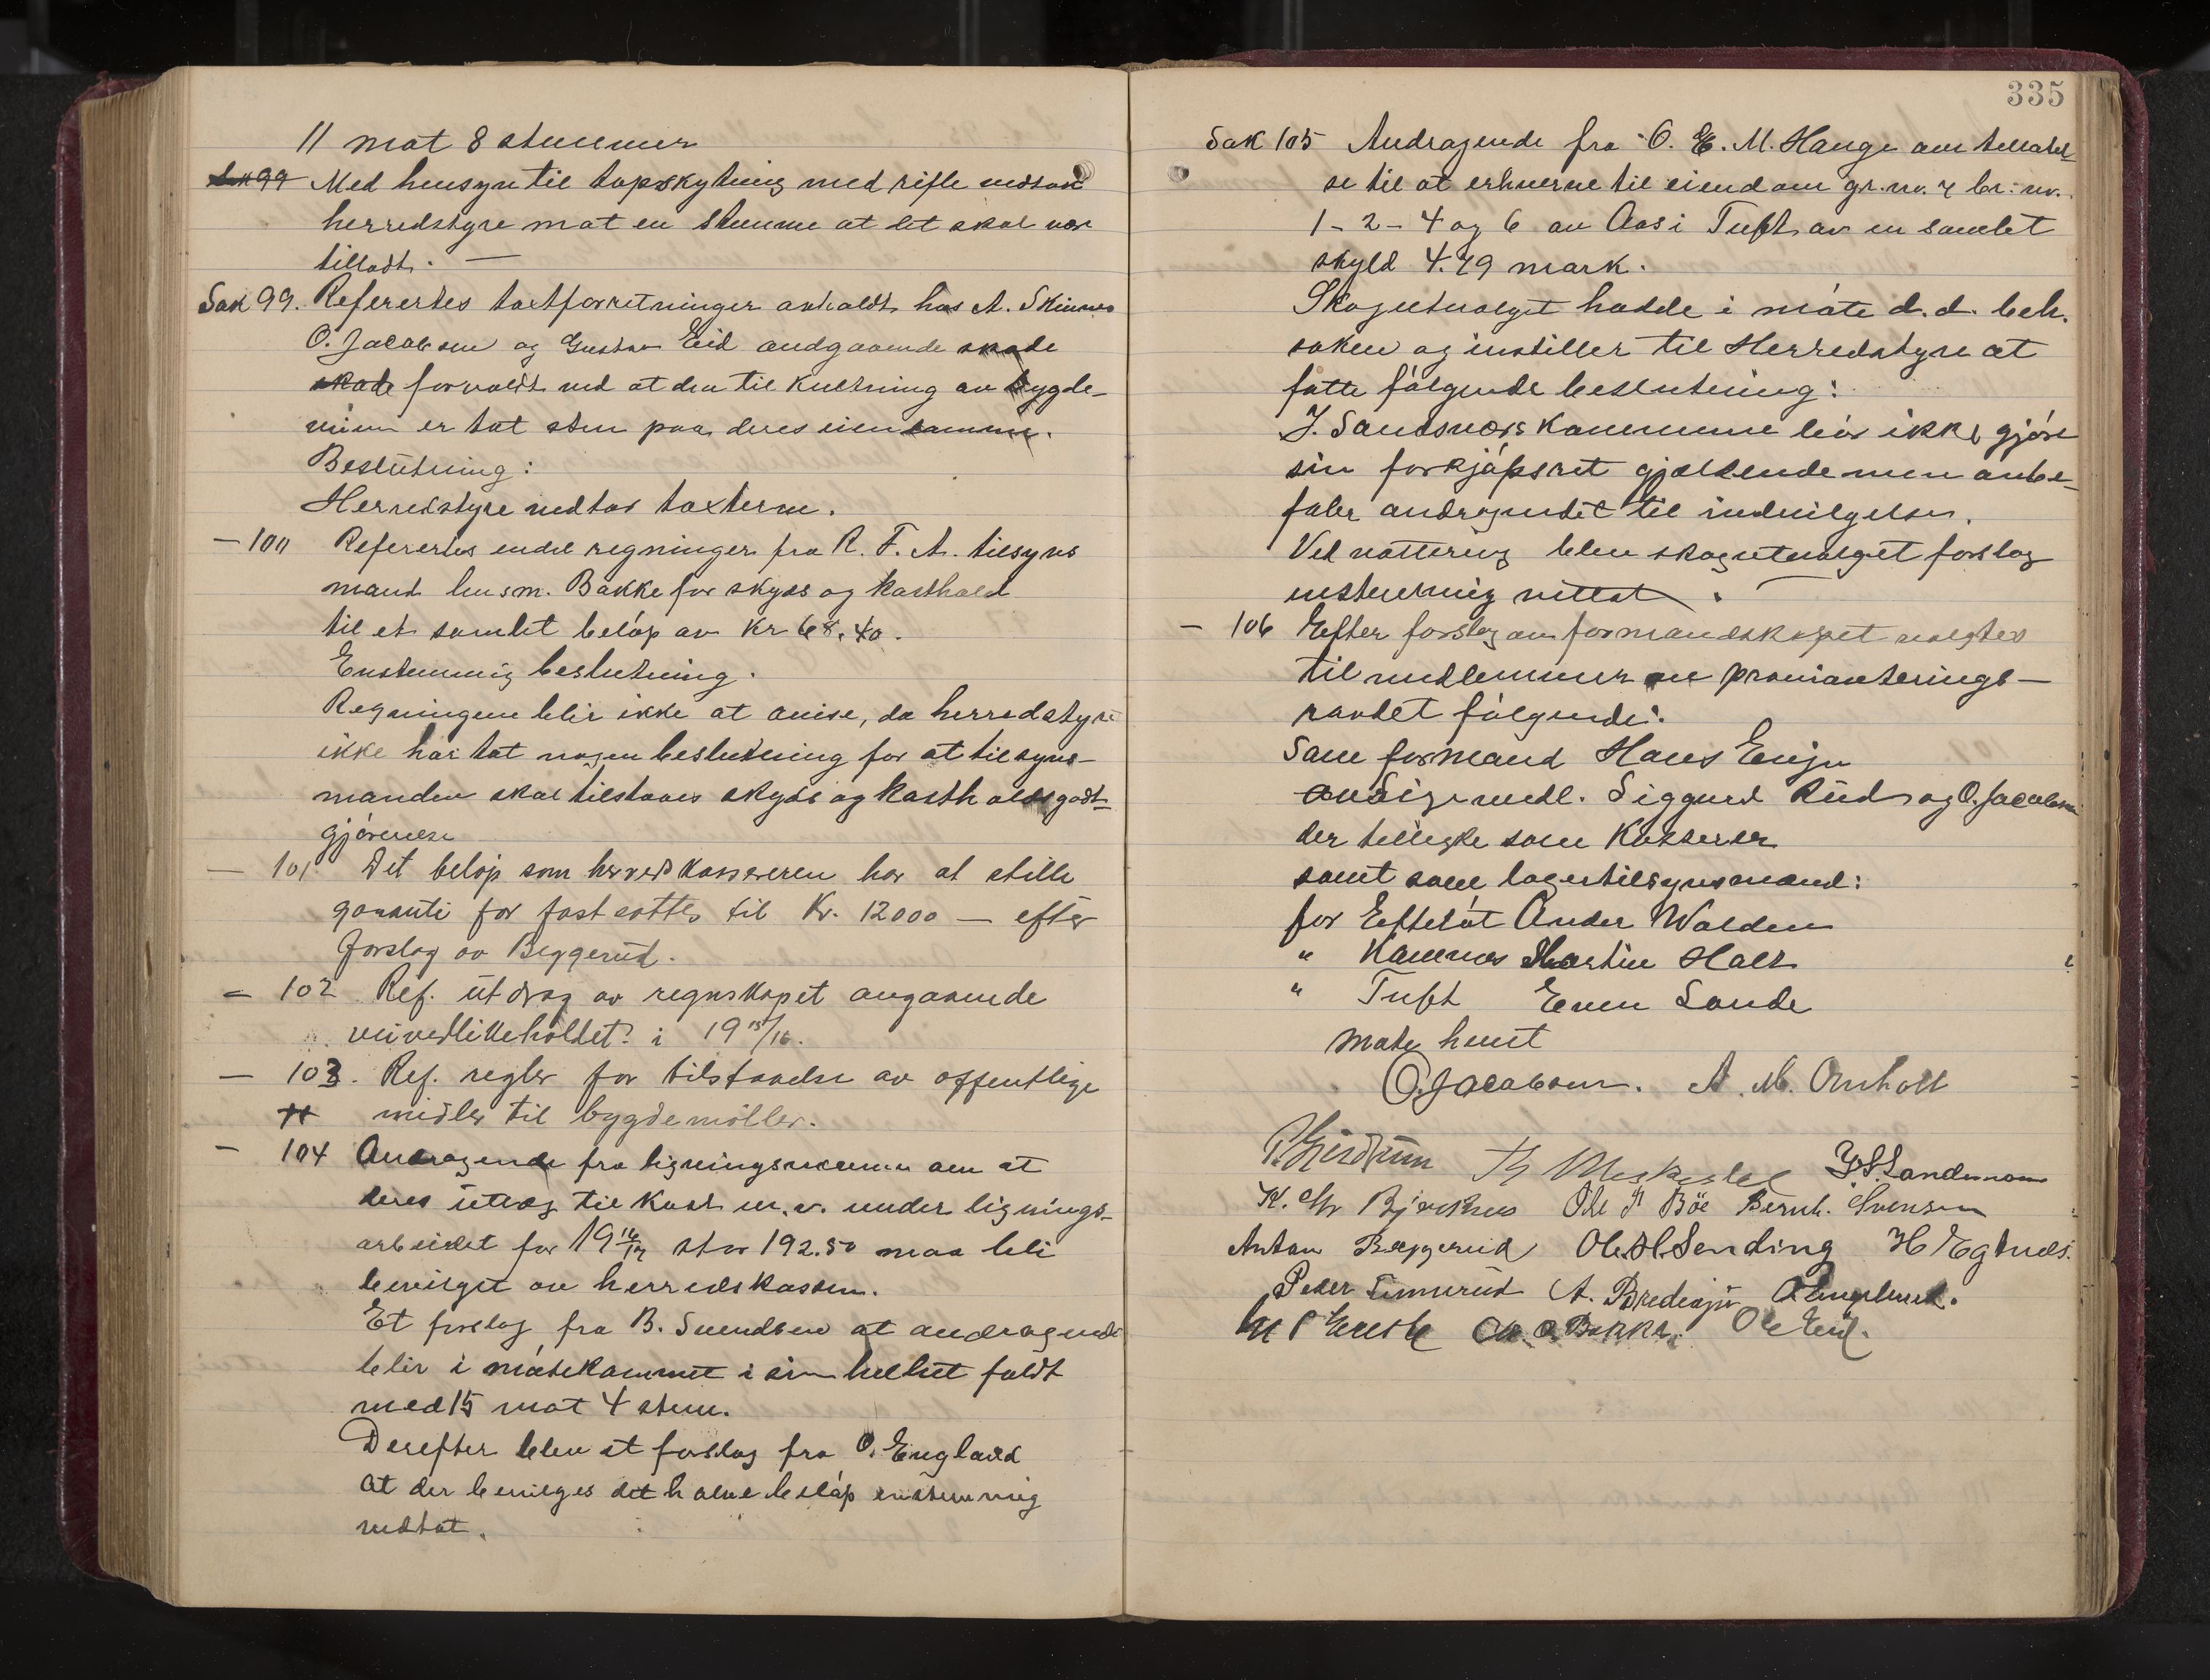 11 mot 8 stemmer
Sak 99 Med hensyn til topskytning med rifle vedtok
herredstyre mot en stemme at det skal vær
tilladt. —
Sak 99. Referertes taxtforretninger avholdt hos A. Skinnes
O. Jacobsen og Gustav Eid andgaaende skade
skade forvoldt ved at der til kultning av bygde-
veien er tat sten paa deres eiendomme.
Beslutning:
Herredstyre vedtar taxterne.
— 100 Referertes endel regninger fra R. F. A. tilsyns
mand husm. Bakke for skyds og kosthold
til et samlet beløp av Kr 68.40.
Enstemmig beslutning.
Regningene blir ikke at anvise, da herredstyre
ikke har tat nogen beslutning for at tilsyns-
manden skal tilstaaes skyds og kostholdsgodt-
gjørelse
— 101 Det beløp som herredskassereren har at stille
garanti for fastsattes til Kr. 12000 — efter
forslag av Beggerud.
— 102 Ref. utdrag av regnskapet angaaende
veivedlikeholdet i 19 15/16.
— 103. Ref. regler for tilstaaelse av offentlige
midler til bygdemøller.
— 104 Andragende fra ligningsnævnen om at
deres utlæg til kost m.v. under lignings-
arbeidet for 19 16/17 stor 192.50 maa bli
bevilget av herredskassen.
Et forslag fra B. Svendsen at andragende
blir i møtekommet i sin helhet faldt
med 15 mot 4 stem.
Derefter blev et forslag fra O. England
at der bevilges det halve beløp enstemmig
vedtat.
335
Sak 105 Andragende fra O. E. M. Hauge om tillatel
se til at erhverve til eiendom gr. nv. 7 br: nv.
1 - 2 - 4 og 6 av Aas i Tuft av en samlet
skyld 4.79 mark.
Skogutvalget hadde i møte d.d. beh.
saken og instiller til Herredstyre at
fatte følgende beslutning:
Y. Sandsværs kommune bør ikke gjøre
sin forkjøpsret gjældende men anbe-
faler andragendet til indvilgelse.
Ved vottering blev skogutvalget forslag
enstemmig vettat.
— 106 Efter forslag av formandskapet valgtes
til medlemmer av provianterings-
raadet følgende:
Som formand Hans Enger
øvrige medl. Siggurd Rud og O. Jacobsen
der tillike som Kasserer
samt som lagertilsynsmænd:
for Efteløt Ander Wolden
" Komnes Martin Holt
" Tuft Even Sande
Møte hevet
O. Jacobsen. A. M. Omholt
P. Gjerdrum J. S. Sandsnæs
K. Chr Bjerknes Ole P Böe Bernh. Svensen
Anton Beggerud Ole H. Sending H Eglands.
Peder Timmerud A. Bredesjø O England.
O. Bakke. Ole Eid.